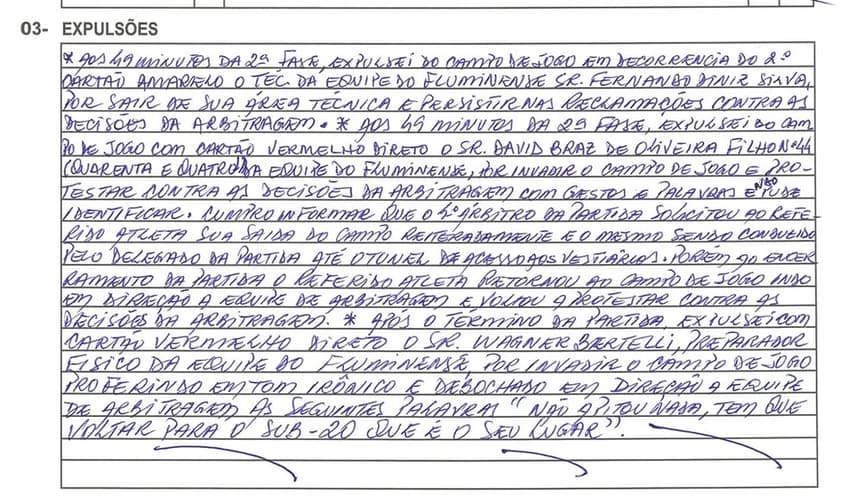 03- EXPULSÕES
* AOS 49 MINUTOS DA 2ª FASE, EXPULSEI DO CAMPO DE JOGO EM DECORRENCIA DO 2º
CARTÃO AMARELO O TÉC. DA EQUIPE DO FLUMINENSE SR. FERNANDO DINIZ SILVA,
POR SAIR DE SUA ÁREA TÉCNICA E PERSISTIR NAS RECLAMAÇÕES CONTRA AS
DECISÕES DA ARBITRAGEM. * AOS 49 MINUTOS DA 2ª FASE, EXPULSEI DO CAM-
PO DE JOGO COM CARTÃO VERMELHO DIRETO O SR. DAVID BRAZ DE OLIVEIRA FILHO Nº 44
(QUARENTA E QUATRO) DA EQUIPE DO FLUMINENSE, POR INVADIR O CAMPO DE JOGO E PRO-
TESTAR CONTRA AS DECISÕES DA ARBITRAGEM COM GESTOS E PALAVRAS E NÃO PUDE
IDENTIFICAR. CUMPRO INFORMAR QUE O 4º ÁRBITRO DA PARTIDA SOLICITOU AO REFE-
RIDO ATLETA SUA SAIDA DO CAMPO REITERADAMENTE E O MESMO SENDO CONDUZIDO
PELO DELEGADO DA PARTIDA ATÉ O TUNEL DE ACESSO AOS VESTIÁRIOS. PORÉM AO ENCER
RAMENTO DA PARTIDA O REFERIDO ATLETA RETORNOU AO CAMPO DE JOGO INDO
EM DIREÇÃO A EQUIPE DE ARBITRAGEM E VOLTOU A PROTESTAR CONTRA AS
DECISÕES DA ARBITRAGEM. * APÓS O TÉRMINO DA PARTIDA, EXPULSEI COM
CARTÃO VERMELHO DIRETO O SR. WAGNER BERTELLI, PREPARADOR
FISICO DA EQUIPE DO FLUMINENSE POR INVADIR O CAMPO DE JOGO
PROFERINDO EM TOM IRÔNICO E DEBOCHADO EM DIREÇÃO A EQUIPE
DE ARBITRAGEM AS SEGUINTES PALAVRAS "NÃO APITOU NADA, TEM QUE
VOLTAR PARA O SUB-20 QUE É O SEU LUGAR".